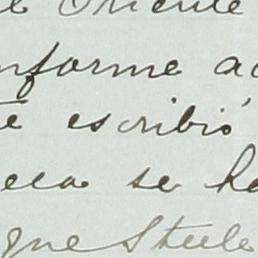 el Oriente
nforme ac
te escribió
eca se ha
que Steele